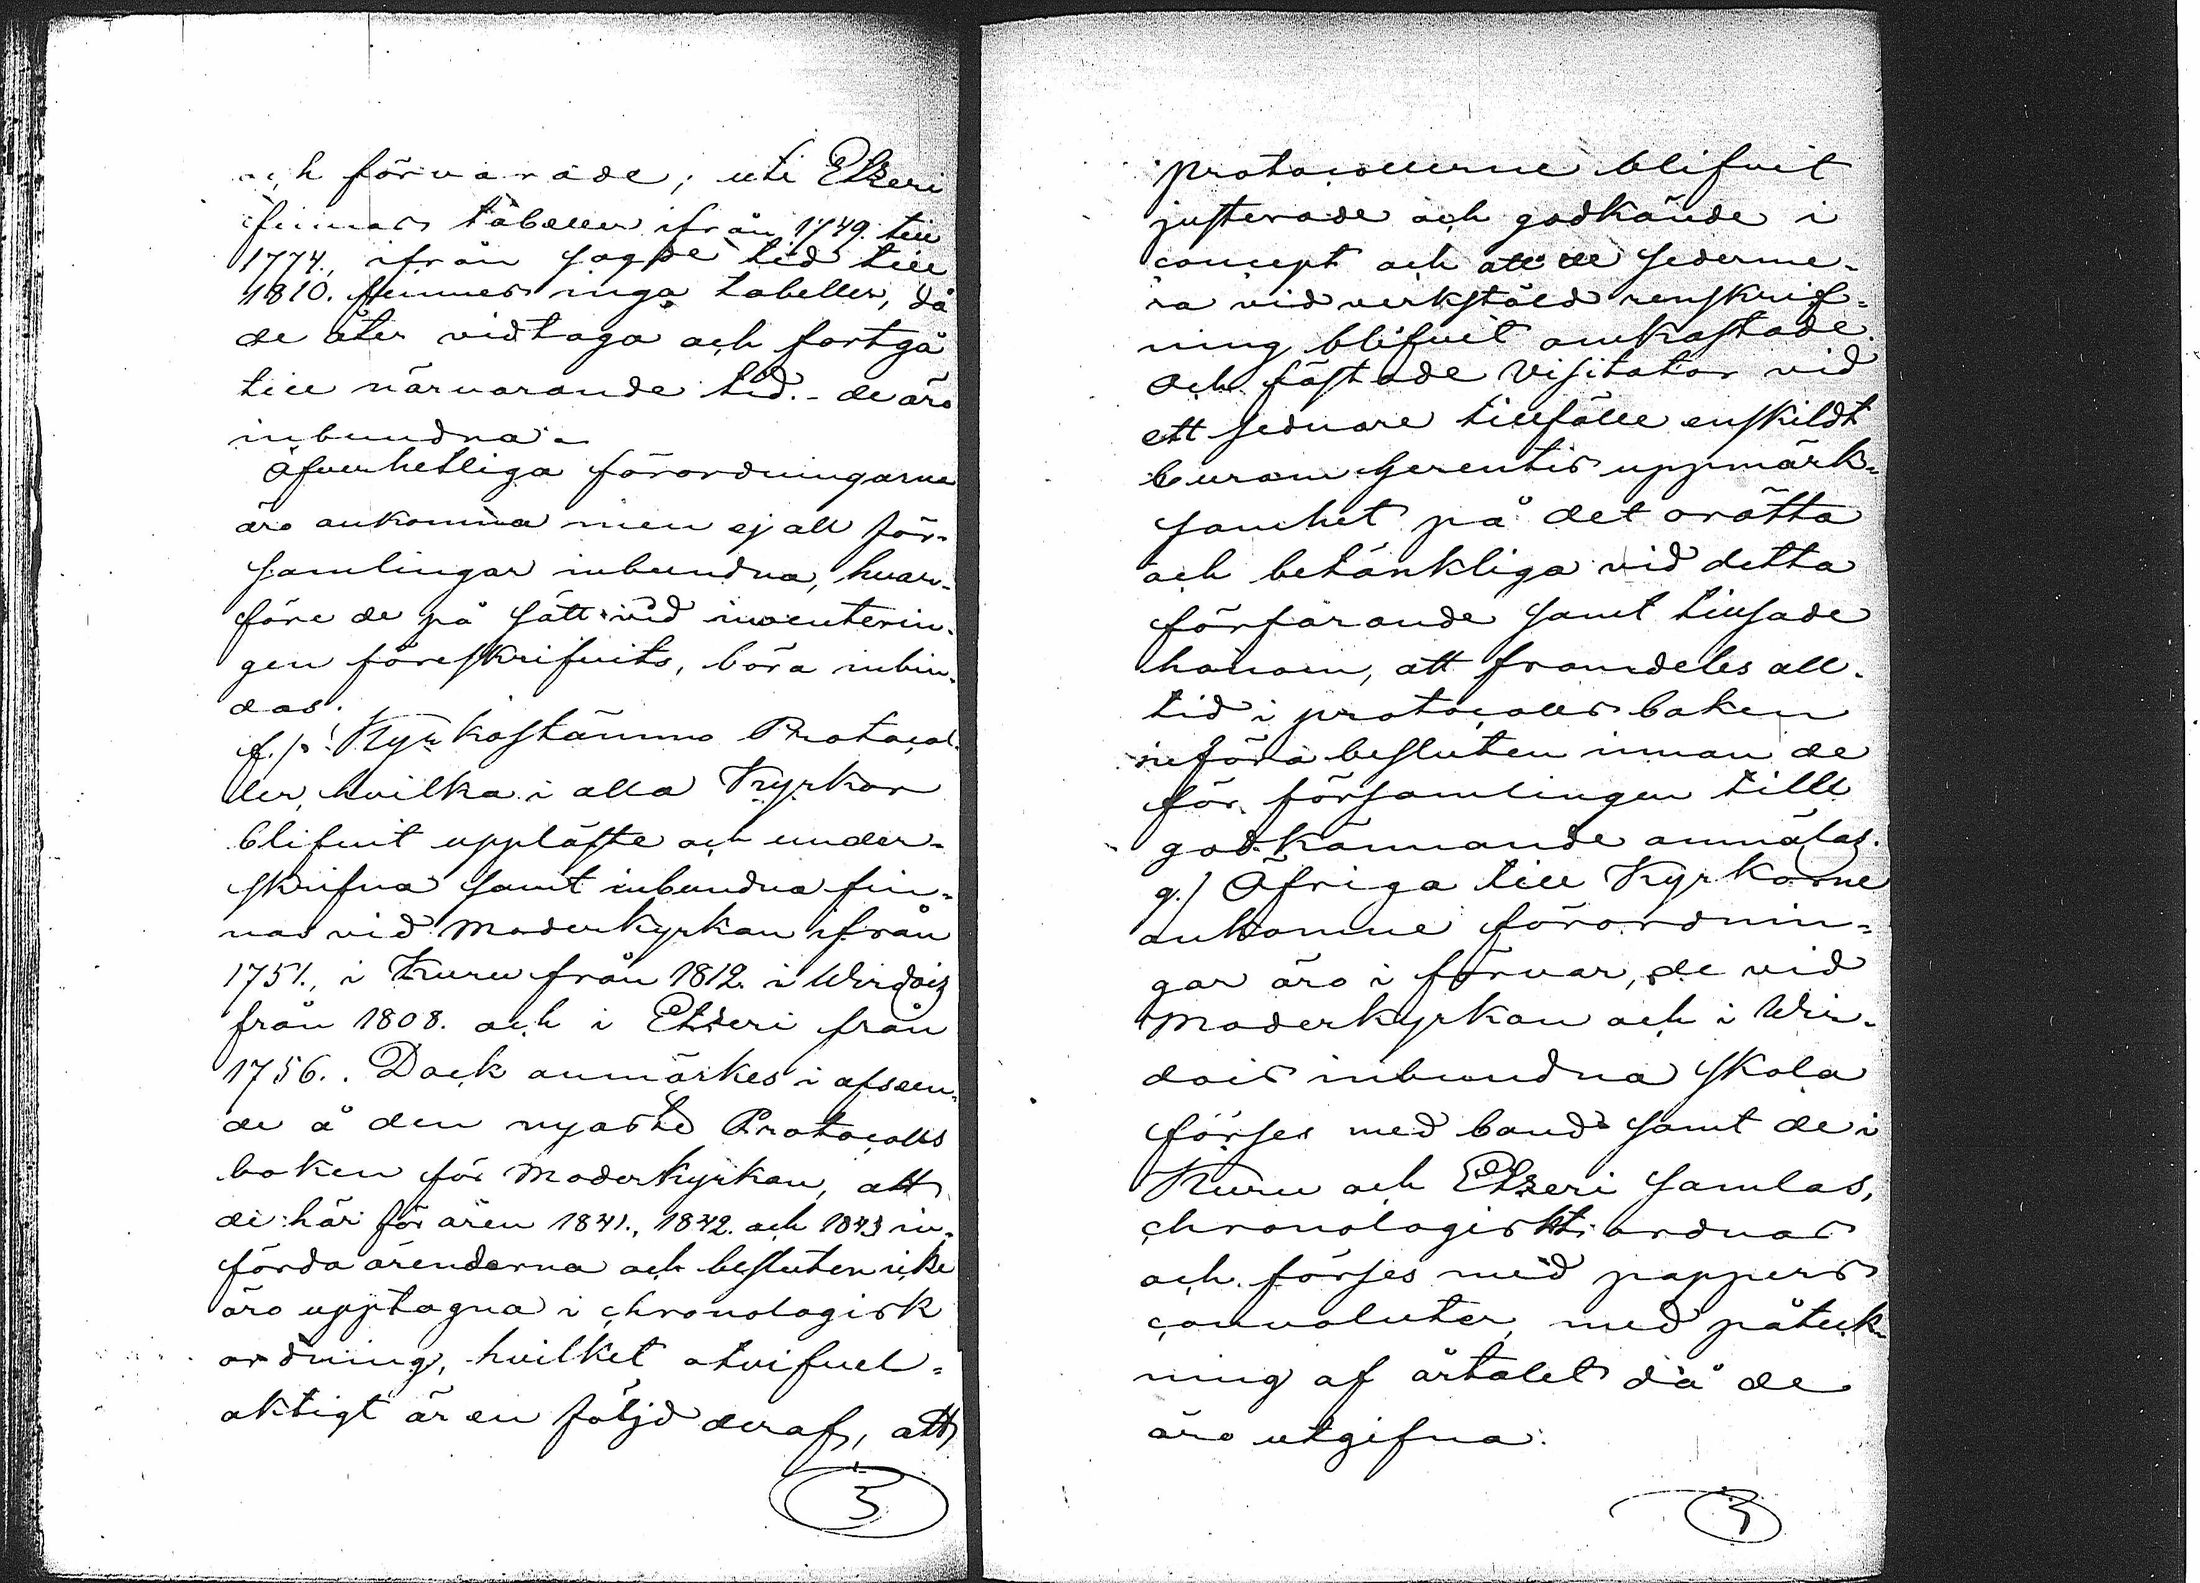 och förvarade; uti Etseri
finnas tabeller ifrån 1749. till
1774., ifrån sagde tid till
1810. finnes inga tabeller, då
de åter vidtaga och fortgå
till närvarande tid. - de äro
inbundna. -
Öfverhetliga förordningarne
äro ankomna men ej all för-
samlingar inbundna, hvar-
före de på sätt vid inventerin-
gen föreskrifvits, böra inbin-
das.
f.) Kyrkostämmo Protocol-
ler, hvilka i alla Kyrkor
blifvit uppläste och under-
skrifna samt inbundna fin-
nas vid Moderkyrkan ifrån
1751., i Kuru från 1812. i Wirdois
från 1808. och i Etseri från
1756.. Dock anmärkes i afseen-
de å den nyaste Protocolls
boken för Moderkyrkan, att
de här för åren 1841., 1842. och 1843 in-
förda ärenderna och besluten icke
äro upptagna i chronologisk
ordning, hvilket otvifvel=
aktigt är en följd deraf, att
3
Protocollerne blifvit
justerade och godkände i
concept och att de sederme-
ra vid verkstäld renskrif=
ning blifvit omkastade.
Och fästade Visitator vid
ett sednare tillfälle enskildt
curam Gerentis uppmärk=
samhet på det orätta
och betänkliga vid detta
förfarande samt tillsade
honom, att framdeles all-
tid i protocolls boken
införa besluten innan de
för församlingen till
godkännande anmälas.
g.) Öfriga till Kyrkorne
ankomne förordnin=
gar äro i förvar, de vid
Moderkyrkan och i Wir-
dois inbundna skola
förses med band samt de i
Kuru och Etseri samlas,
chronologiskt ordnas
och förses med pappers
convoluter, med påteck-
ning af årtalet då de
äro utgifna.
3